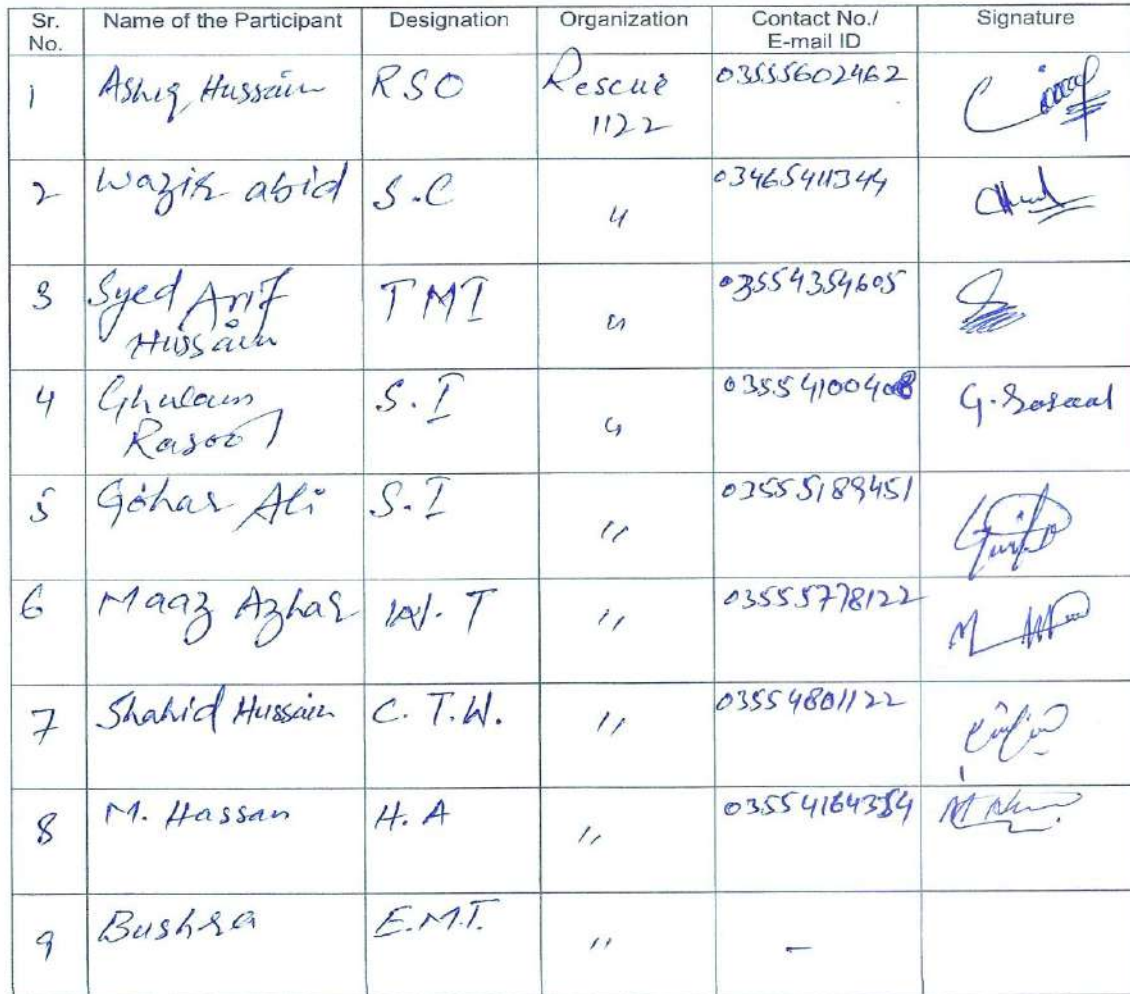 Sr. No. Name of the Participant Designation Organization Contact No./ E-mail ID Signature
1 Ashiq Hussain RSO Rescue 1122 03555602462
2 Wazir abid S.C 〃 03465411344
3 Syed Arif Hussain TMI 〃 03554354605
4 Ghulam Rasool S.I 〃 03554100408 G. Rasool
5 Gohar Ali S.I 〃 03555189451
6 Maaz Azhar W.T 〃 03555778122
7 Shahid Hussain C.T.W. 〃 03554801122
8 M. Hassan H.A 〃 03554164354
9 Bushra E.M.T. 〃 –